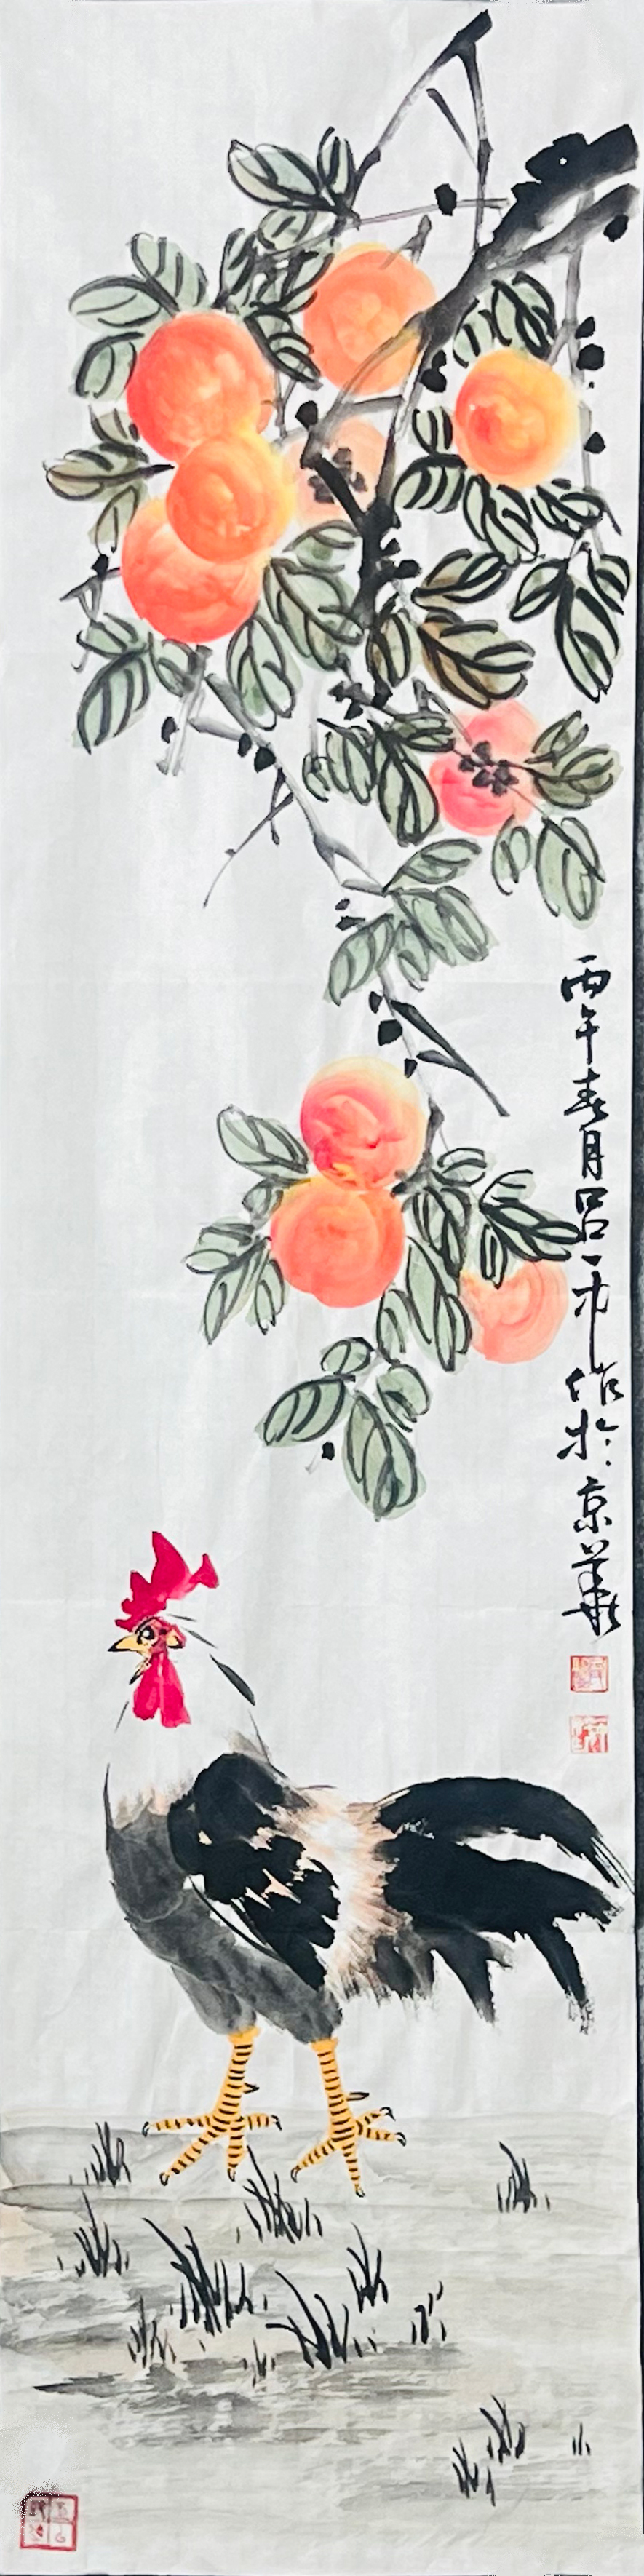 丙午春月吕一平作於京華